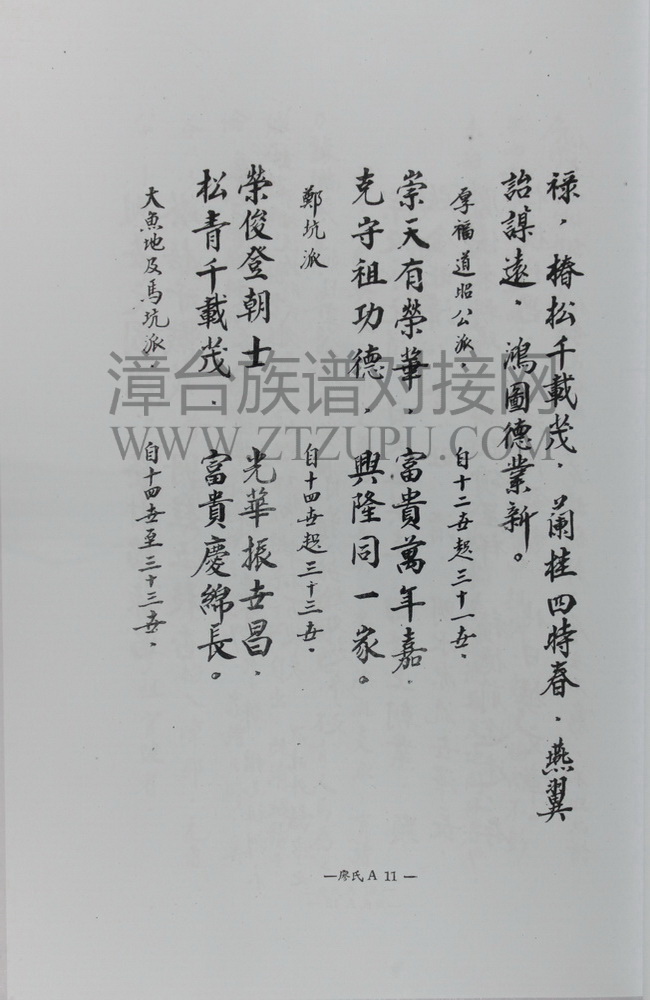 禄，椿松千載茂，蘭桂四時春，燕翼
詒謀遠，鴻圖德業新。
厚福道昭公派， 自十二世起三十一世，
崇天有榮華，富貴萬年嘉，
克守祖功德，興隆同一家。
鄭坑派 自十四世起三十三世，
榮俊登朝士 光華振世昌，
松青千載茂，富貴慶綿長。
大魚地及馬坑派， 自十四世至三十三世，
漳台族谱对接网
WWW.ZTZUPU.COM
—廖氏 A 11 —